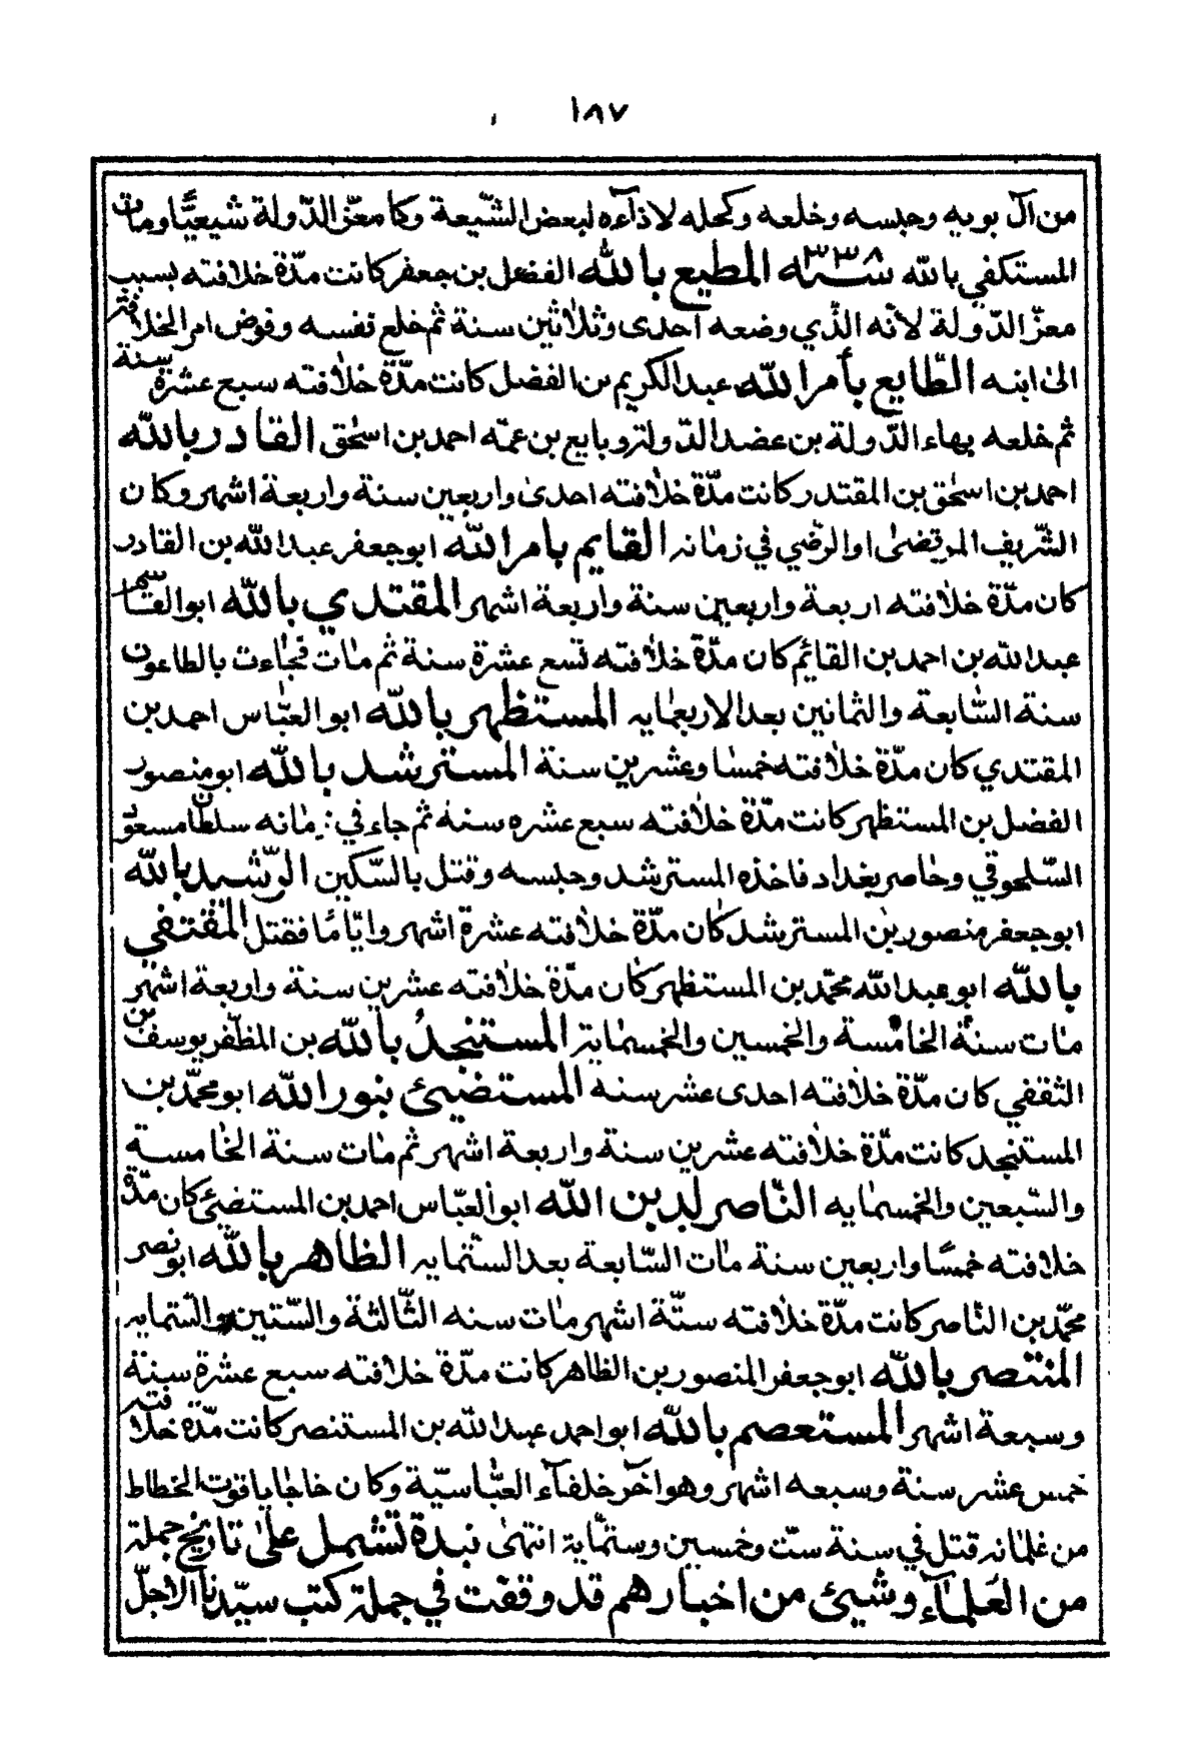 ١٨٧
من آل بويه وحبسه وخلعه وكحله لاذآءه لبعض الشّيعة وكا معزّ الدّولة شيعيًّا ومات
المستكفي بالله سنة ٣٣٨ المطيع بالله الفضل بن جعفر كانت مدّة خلافته بسبب
معزّ الدّولة لانّه الّذي وضعه احدى وثلاثين سنة ثم خلع نفسه وفوض امر الخلافة
الى ابنه الطّايع بأمر الله عبد الكريم بن الفضل كانت مدّة خلافته سبع عشرة سنة
ثم خلعه بهاء الدّولة بن عضد الدّولة وبايع بن عمّه احمد بن اسحٰق القادر بالله
احمد بن اسحٰق بن المقتدر كانت مدّة خلافته احدى واربعين سنة واربعة اشهر وكان
الشّريف المرتضىٰ والرضّي في زمانه القايم بامر الله ابو جعفر عبد الله بن القادر
كان مدّة خلافته اربعة واربعين سنة واربعة اشهر المقتدي بالله ابو القاسم
عبد الله بن احمد بن القائم كان مدّة خلافته تسع عشرة سنة ثم مات فجاءت بالطاعون
سنة السّابعة والثمانين بعد الاربعمايه المستظهر بالله ابو العبّاس احمد بن
المقتدي كان مدّة خلافته خمسا وعشرين سنة المسترشد بالله ابو منصور
الفضل بن المستظهر كانت مدّة خلافته سبع عشره سنة ثم جاء في زمانه سلطان مسعود
السّلجوقي وحاصر بغداد فاخذه المسترشد وحبسه وقتل بالسّكين الرّشيد بالله
ابو جعفر منصور بن المسترشد كان مدّة خلافته عشرة اشهر وايّامًا فقتل المقتفي
بالله ابو عبد الله محمّد بن المستظهر كان مدّة خلافته عشرين سنة واربعة اشهر
مات سنة الخامسة والخمسين والخمسماية المستنجدُ بالله بن المظفّر يوسف بن
الثقفي كان مدّة خلافته احدى عشر سنة المستضيئ بنور الله ابو محمّد بن
المستنجد كانت مدّة خلافته عشرين سنة واربعة اشهر ثم مات سنة الخامسة
والسّبعين والخمسمايه النّاصر لدين الله ابو العبّاس احمد بن المستضئ كان مدّة
خلافته خمسًا واربعين سنة مات السّابعة بعد الستّمايه الظاهر بالله ابو نصر
محمّد بن النّاصر كانت مدّة خلافته ستّة اشهر مات سنه الثّالثة والسّتين والسّتمايه
المنتصر بالله ابو جعفر المنصور بن الظاهر كانت مدّة خلافته سبع عشرة سنة
وسبعة اشهر المستعصم بالله ابو احمد عبد الله بن المستنصر كانت مدّة خلافته
خمس عشر سنة وسبعه اشهر وهو اخر خلفآء العبّاسيّة وكان خاجا ياقوت الخطاط
من غلمانه قتل في سنة ستّ وخمسين وستمّاية انتهىٰ نبذة تشمل علىٰ تاريخ جملة
من العلمآء وشيئ من اخبارهم قد وقفت في جملة كتب سيّدنا الاجلّ